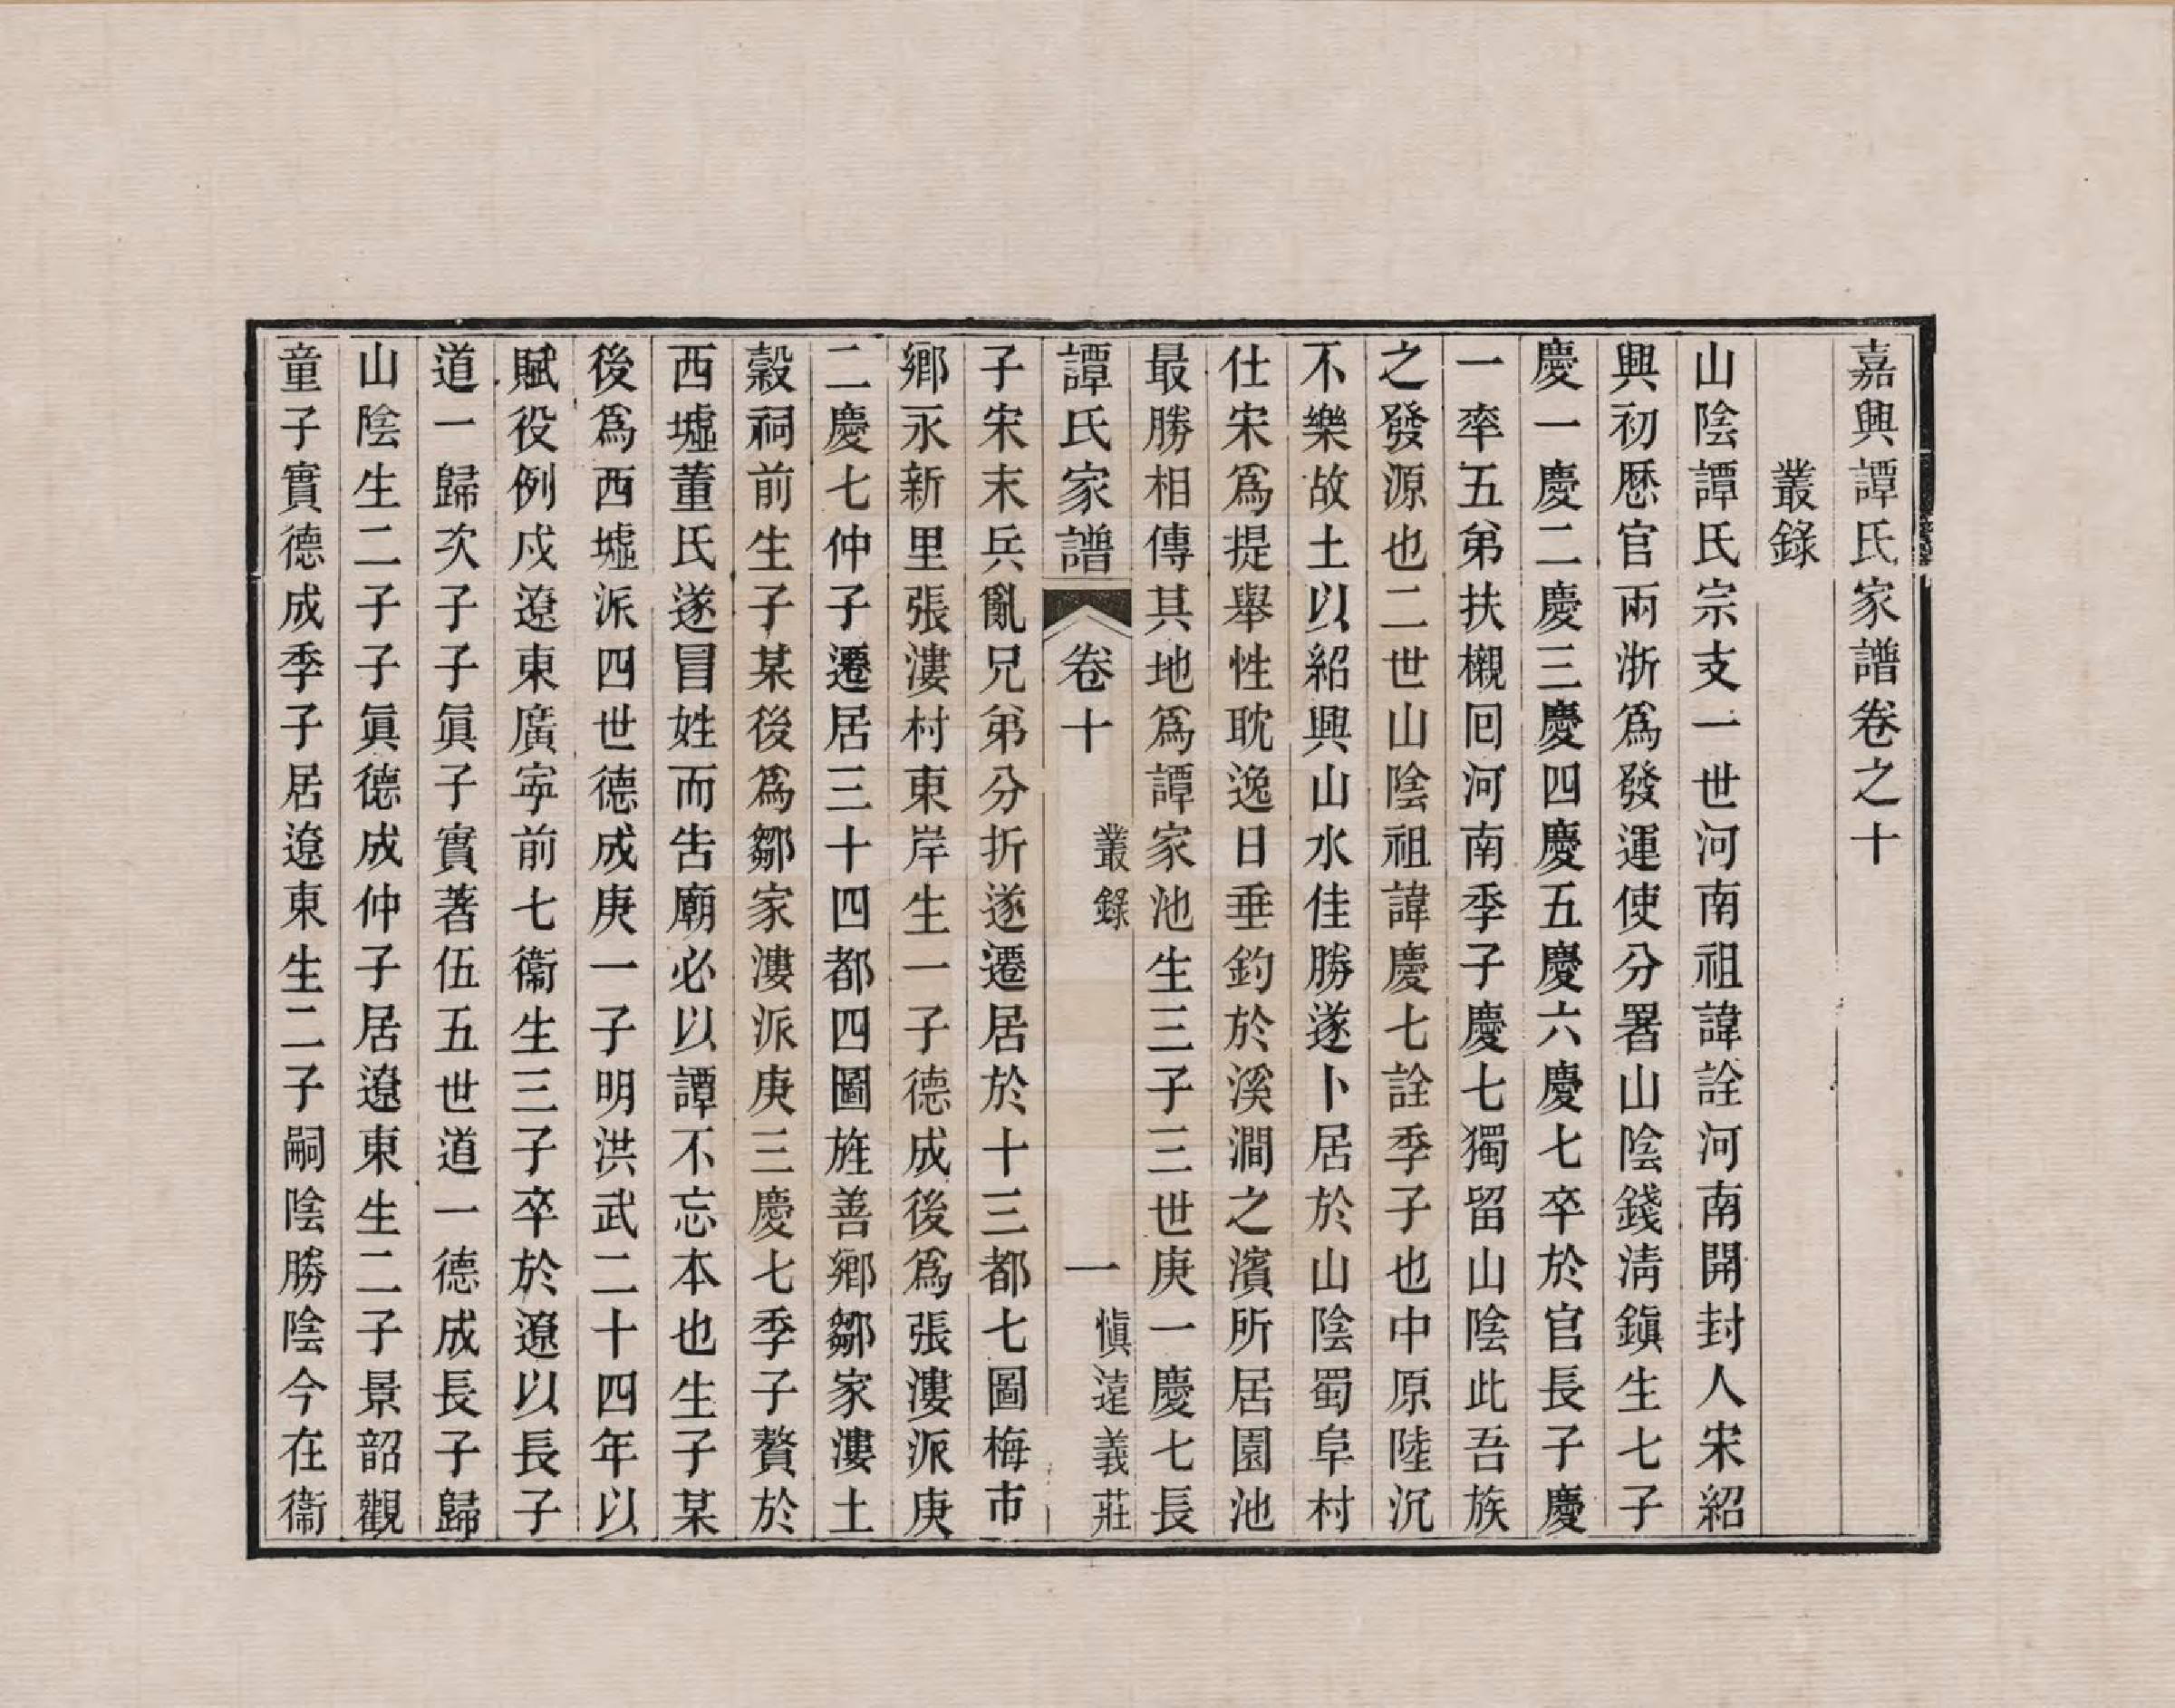 嘉興譚氏家譜卷之十
叢錄
山陰譚氏宗支一世河南祖諱詮河南開封人宋紹
興初歷官兩浙爲發運使分署山陰錢淸鎭生七子
慶一慶二慶三慶四慶五慶六慶七卒於官長子慶
一率五弟扶櫬回河南季子慶七獨留山陰此吾族
之發源也二世山陰祖諱慶七詮季子也中原陸沉
不樂故土以紹興山水佳勝遂卜居於山陰蜀阜村
仕宋爲提舉性耽逸日垂釣於溪澗之濱所居園池
最勝相傳其地爲譚家池生三子三世庚一慶七長
譚氏家譜 卷十 叢錄 一 愼遠義莊
子宋末兵亂兄弟分折遂遷居於十三都七圖梅市
鄉永新里張漊村東岸生一子德成後爲張漊派庚
二慶七仲子遷居三十四都四圖旌善鄉鄒家漊土
穀祠前生子某後爲鄒家漊派庚三慶七季子贅於
西墟董氏遂冒姓而告廟必以譚不忘本也生子某
後爲西墟派四世德成庚一子明洪武二十四年以
賦役例戍遼東廣寧前七衞生三子卒於遼以長子
道一歸次子子眞子實著伍五世道一德成長子歸
山陰生二子子眞德成仲子居遼東生二子景韶觀
童子實德成季子居遼東生二子嗣陰勝陰今在衞